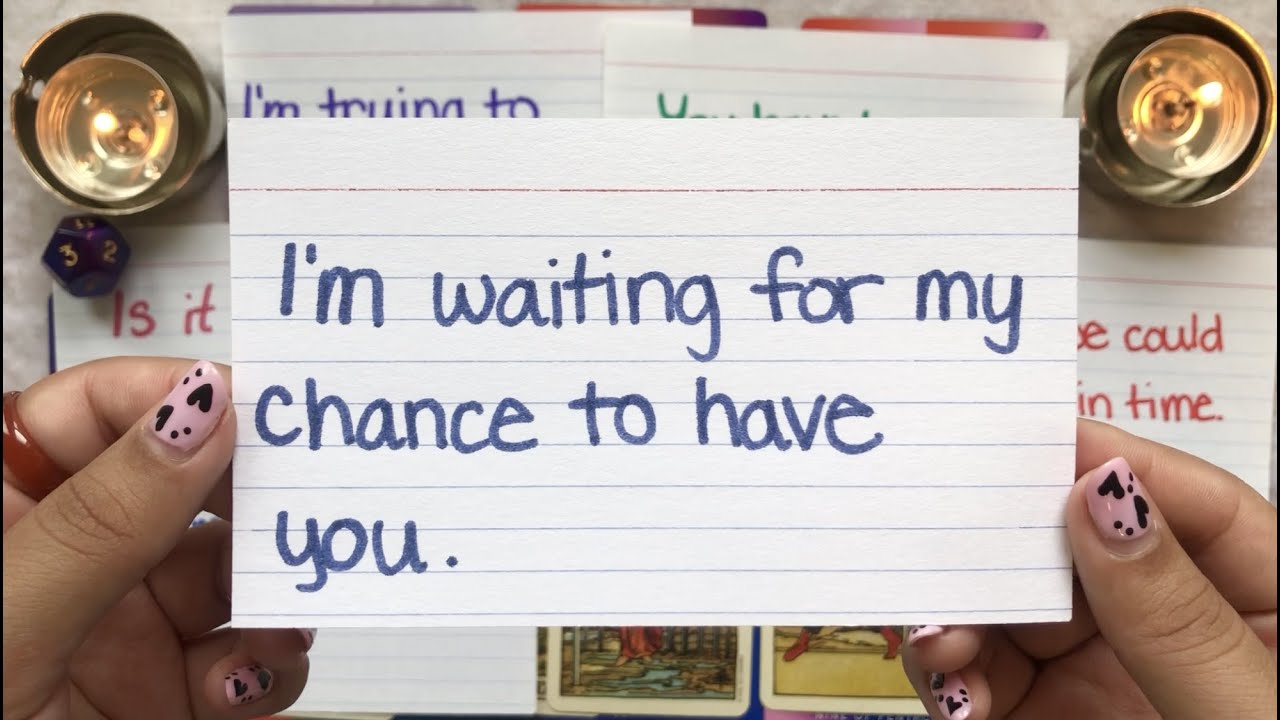 I'm trying to
You
I'm waiting for my
chance to have
you.
Is it
could
in time.
3 2